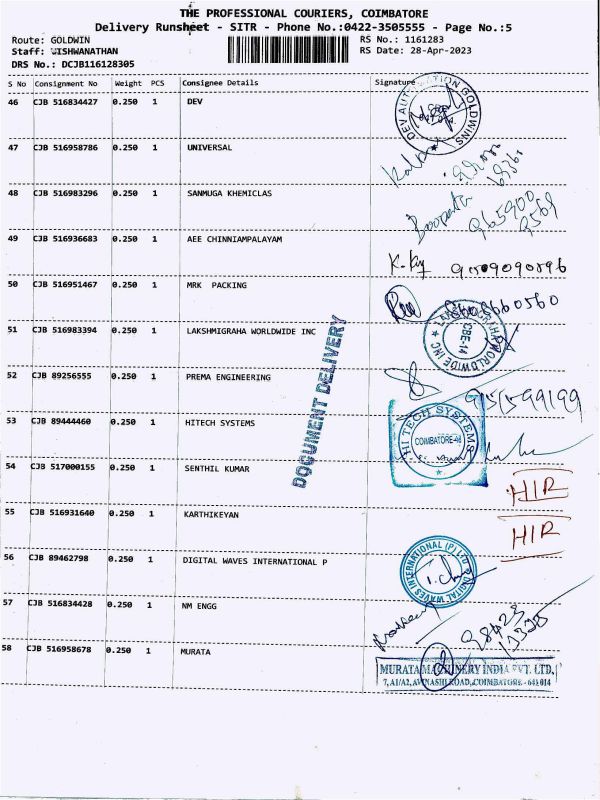 THE PROFESSIONAL COURIERS, COIMBATORE
Delivery Runsheet - SITR - Phone No.:0422-3505555 - Page No.:5
Route: GOLDWIN
Staff: VISHWANATHAN
DRS No.: DCJB116128305
RS No.: 1161283
RS Date: 28-Apr-2023
S No Consignment No Weight PCS Consignee Details Signature
46 CJB 516834427 0.250 1 DEV
DEV AUTOMATION GOLDWINS
47 CJB 516958786 0.250 1 UNIVERSAL
48 CJB 516983296 0.250 1 SANMUGA KHEMICLAS
49 CJB 516936683 0.250 1 AEE CHINNIAMPALAYAM
50 CJB 516951467 0.250 1 MRK PACKING
51 CJB 516983394 0.250 1 LAKSHMIGRAHA WORLDWIDE INC
CBE-14
WORLDWIDE INC
DOCUMENT DELIVERY
52 CJB 89256555 0.250 1 PREMA ENGINEERING
53 CJB 89444460 0.250 1 HITECH SYSTEMS
HI TECH SYSTEMS
COIMBATORE
54 CJB 517000155 0.250 1 SENTHIL KUMAR
HIR
55 CJB 516931640 0.250 1 KARTHIKEYAN
HIR
56 CJB 89462798 0.250 1 DIGITAL WAVES INTERNATIONAL P
DIGITAL WAVES INTERNATIONAL (P) LTD
57 CJB 516834428 0.250 1 NM ENGG
58 CJB 516958678 0.250 1 MURATA
MURATA MACHINERY INDIA PVT. LTD,
7,A1/A2, AVINASHI ROAD, COIMBATORE - 641 014